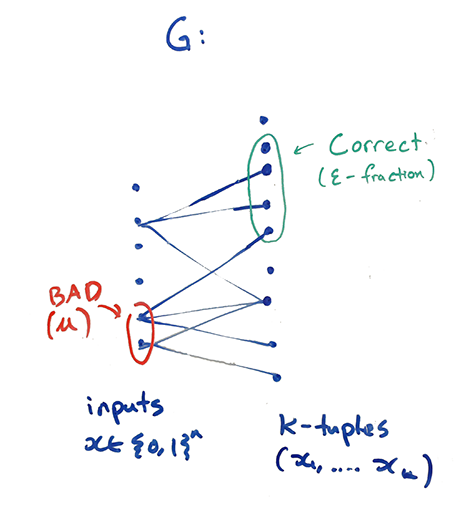 G:
Correct
(ε-fraction)
BAD
(μ)
inputs
x ∈ {0,1}ⁿ
k-tuples
(x₁, .... xₖ)